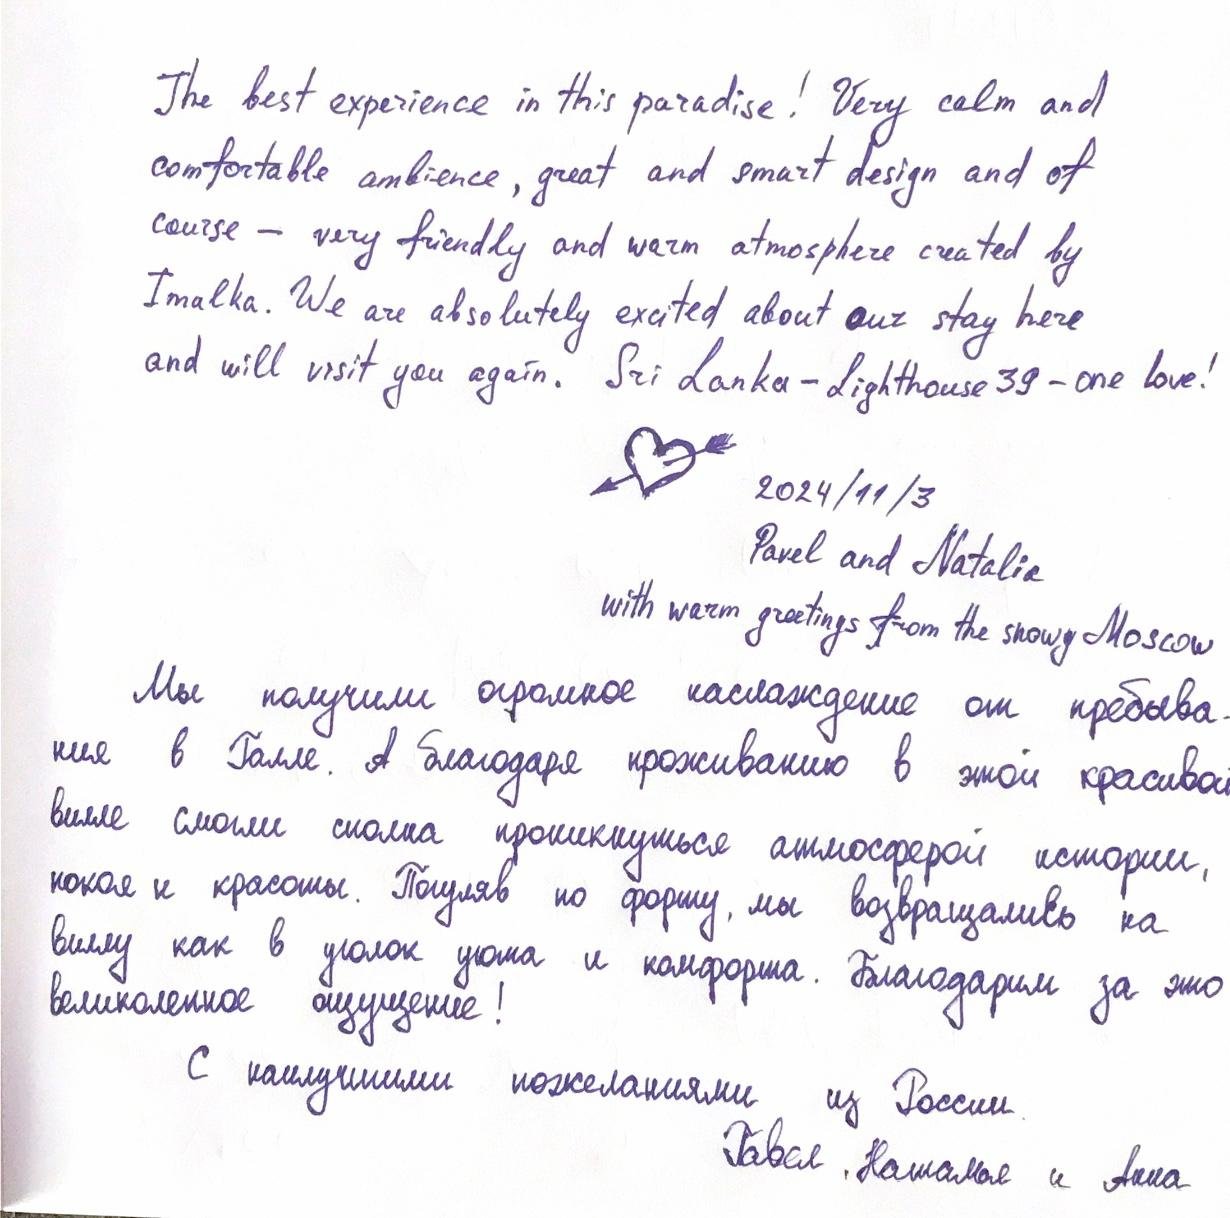 The best experience in this paradise! Very calm and
comfortable ambience, great and smart design and of
course – very friendly and warm atmosphere created by
Imalka. We are absolutely excited about our stay here
and will visit you again. Sri Lanka – Lighthouse 39 – one love!
2024/11/3
Pavel and Natalia
with warm greetings from the snowy Moscow
Мы получили огромное наслаждение от пребыва-
ния в Галле. А благодаря проживанию в этой красивой
вилле смогли сполна проникнуться атмосферой истории,
покоя и красоты. Погуляв по форту, мы возвращались на
виллу как в уголок уюта и комфорта. Благодарим за это
великолепное ощущение!
С наилучшими пожеланиями из России.
Павел, Наталья и Анна